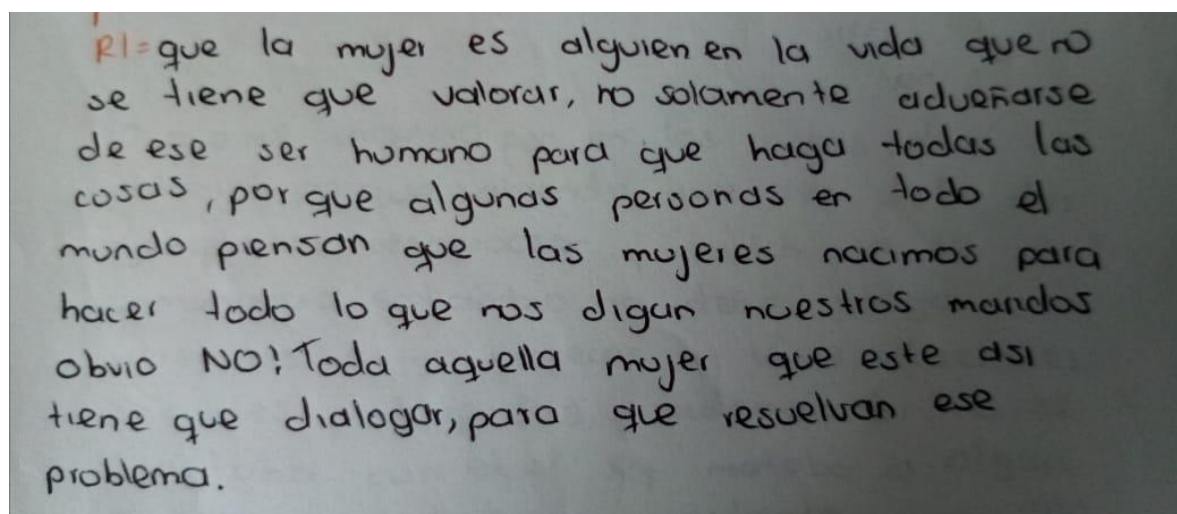 R1= que la mujer es alguien en la vida que no
se tiene que valorar, no solamente adueñarse
de ese ser humano para que haga todas las
cosas, por que algunas personas en todo el
mundo piensan que las mujeres nacimos para
hacer todo lo que nos digan nuestros maridos
obvio NO! Toda aquella mujer que este asi
tiene que dialogar, para que resuelvan ese
problema.